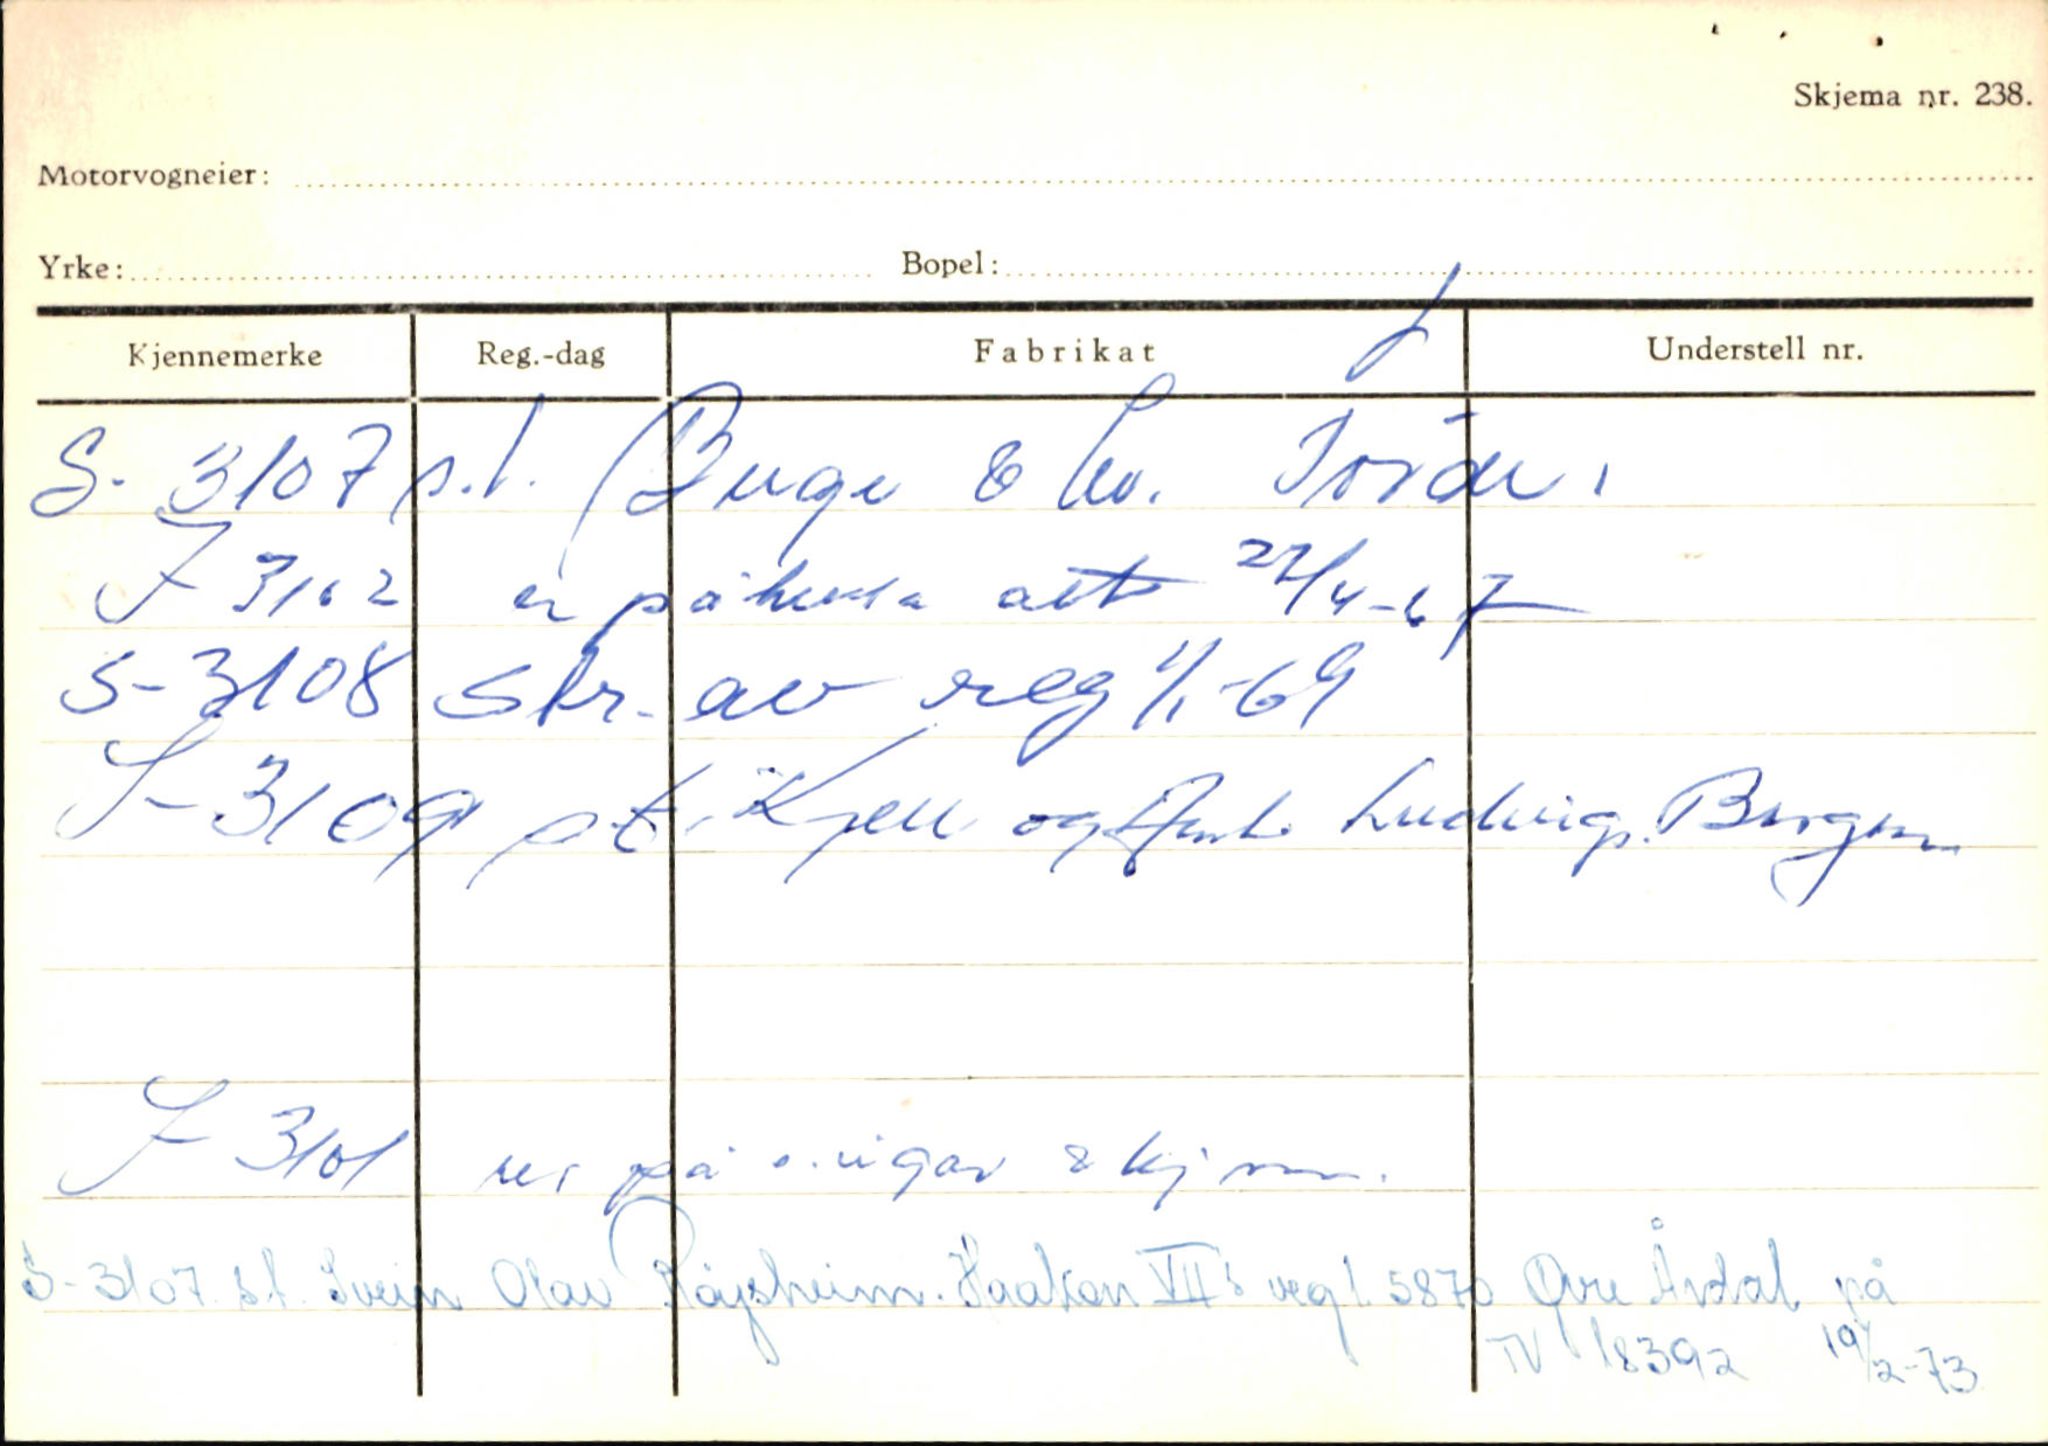 Skjema nr. 238.
Motorvogneier:
Yrke: Bopel:
Kjennemerke Reg.-dag Fabrikat Understell nr.
S-3107 s.t. & Co.
S-3102 er på 22/4-67
S-3108 str. av reg 1/1-69
S-3109 st. Kjell og Ludvigs. Bergum
S-3101 på skjema.
S-3107 s.t. Svein Olav Røysheim. Haakon VII's veg 1. 5870 Øvre Årdal på
TV 18392 19/2-73